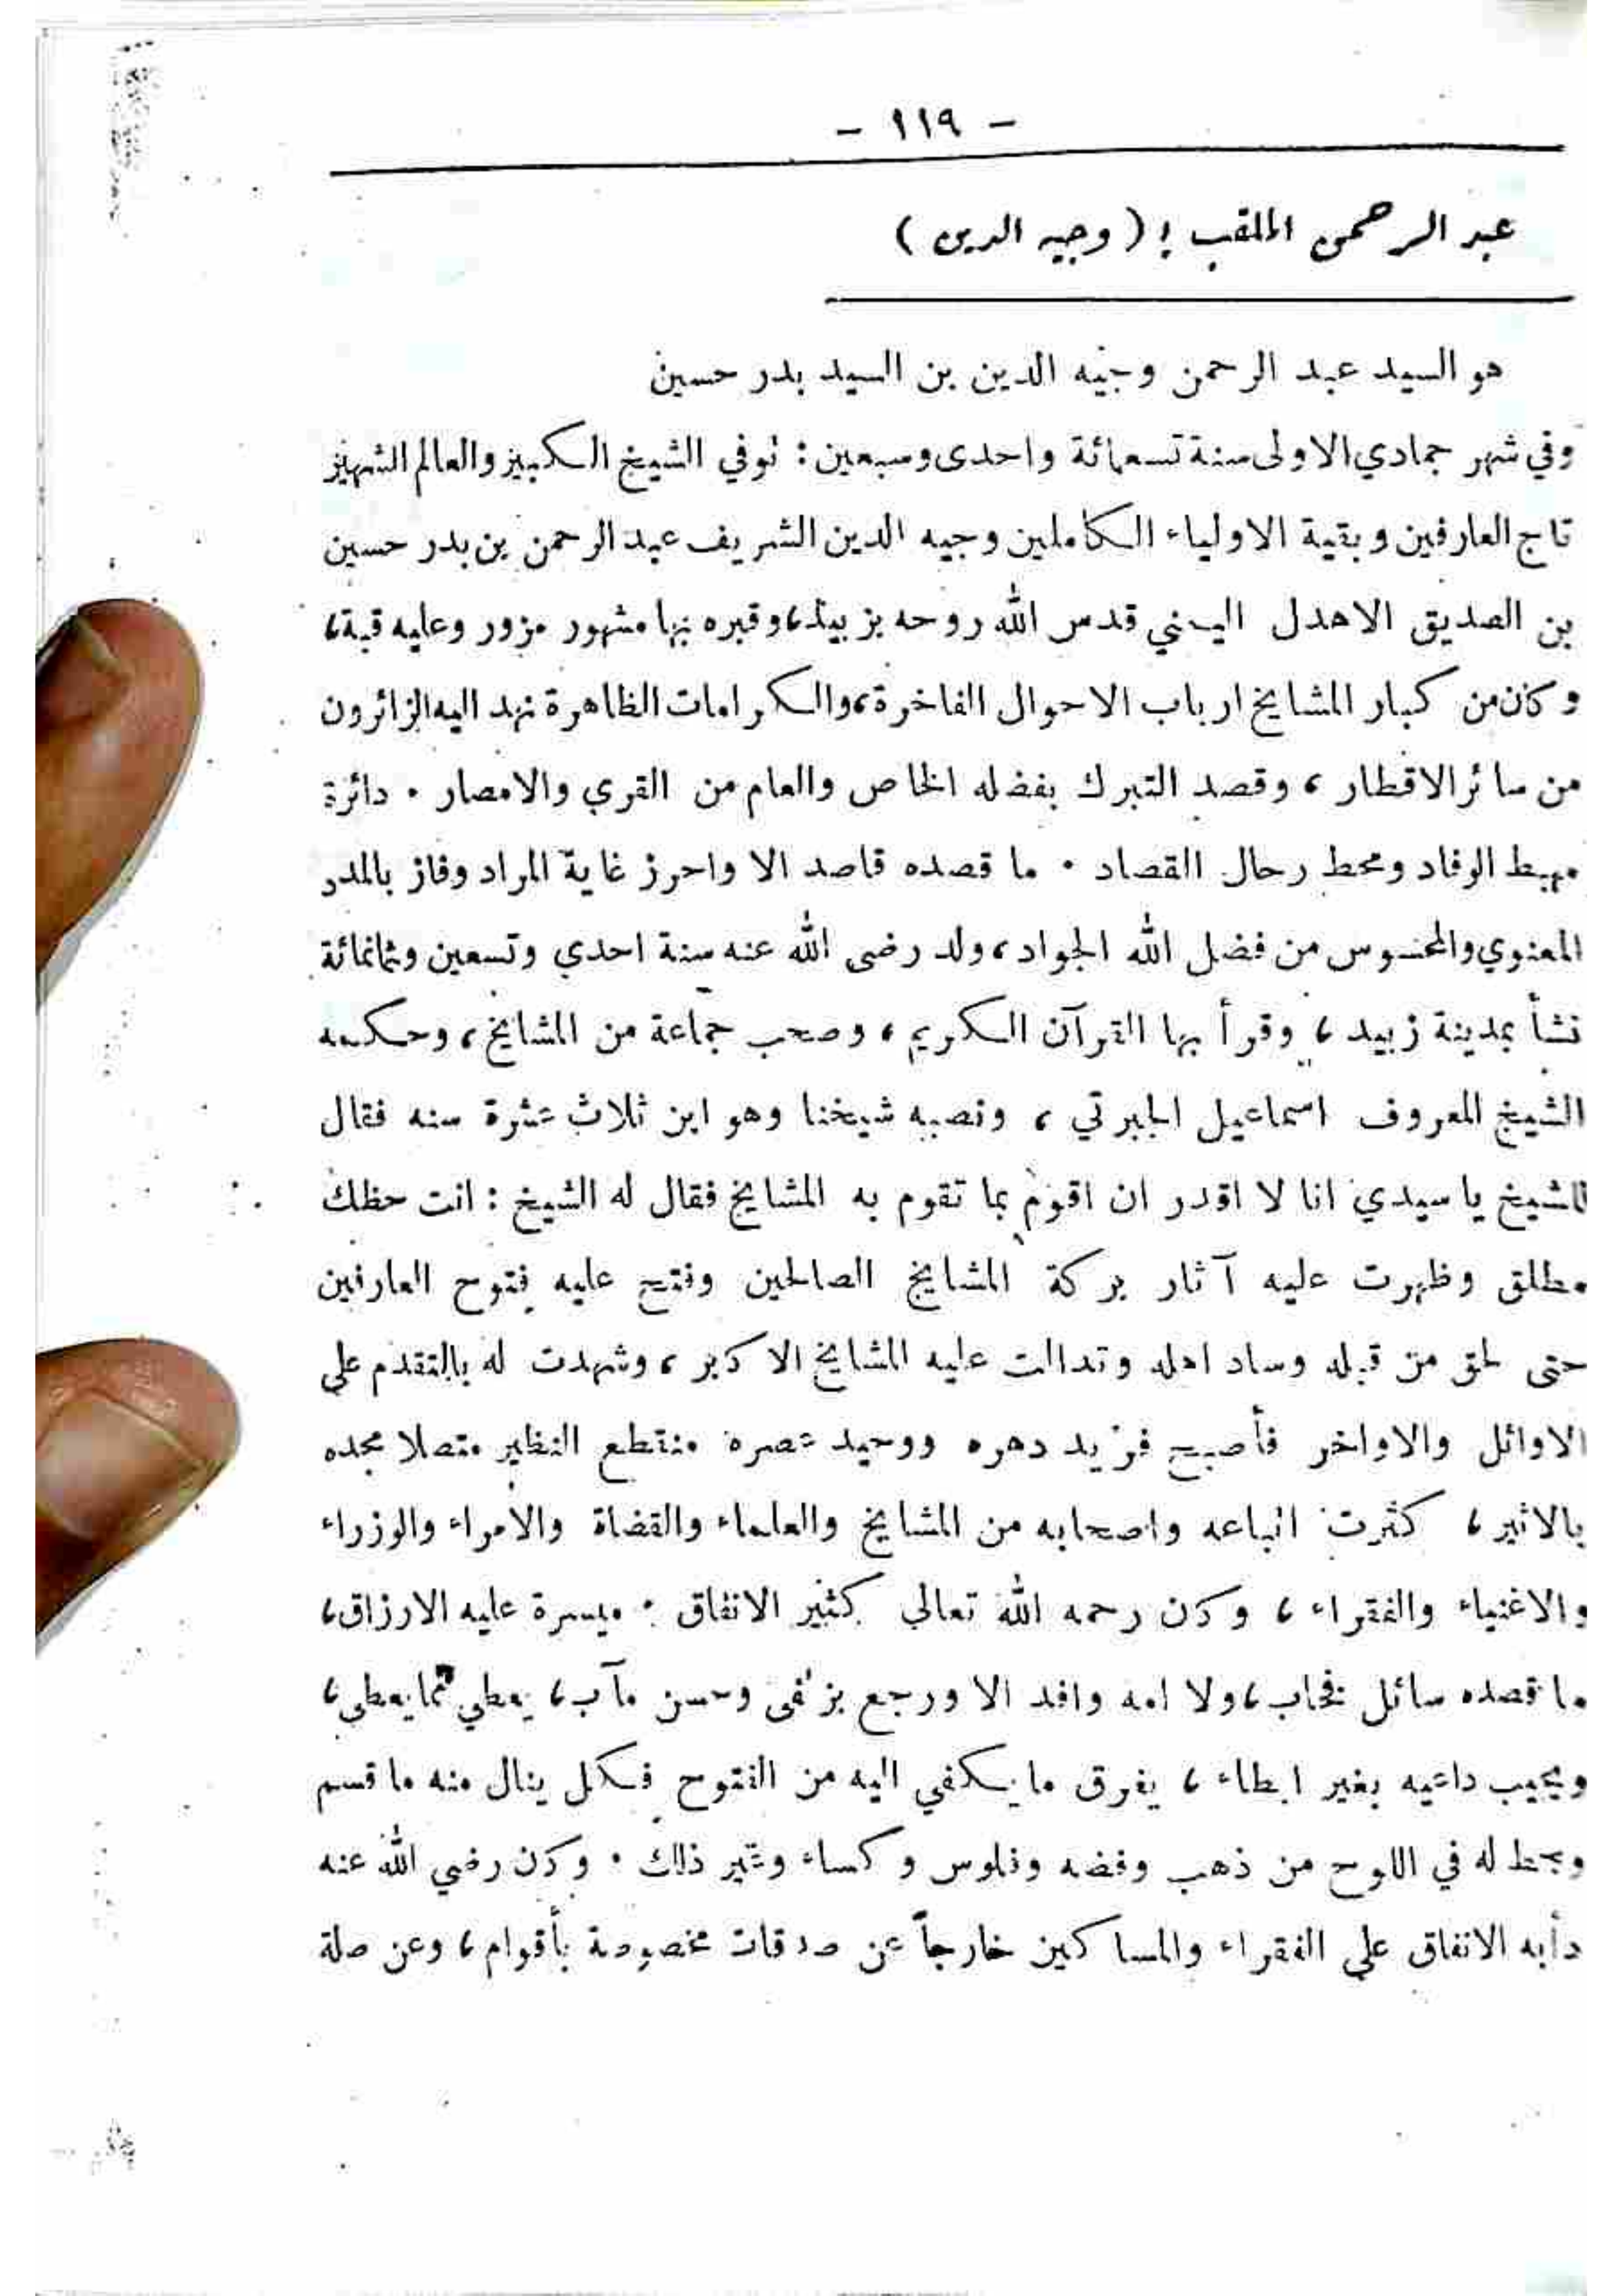 - ١١٩ -
عبد الرحمن الملقب بـ ( وجيه الدين )
هو السيد عبد الرحمن وجيه الدين بن السيد بدر حسين
وفي شهر جمادي الاولى سنة تسعمائة واحدى وسبعين : توفي الشيخ الكبير والعالم الشهير
تاج العارفين وبقية الاولياء الكاملين وجيه الدين الشريف عبد الرحمن بن بدر حسين
بن الصديق الاهدل اليمني قدس الله روحه بزبيد، وقبره بها مشهور مزور وعليه قبة،
وكان من كبار المشايخ ارباب الاحوال الفاخرة، والكرامات الظاهرة تهد اليه الزائرون
من سائر الاقطار ، وقصد التبرك بفضله الخاص والعام من القري والامصار . دائرة
مهبط الوفاد ومحط رحال القصاد . ما قصده قاصد الا واحرز غاية المراد وفاز بالمدد
المعنوي والمحسوس من فضل الله الجواد ، ولد رضى الله عنه سنة احدي وتسعين وثمانمائة
نشأ بمدينة زبيد ، وقرأ بها القرآن الكريم ، وصحب جماعة من المشايخ ، وحكمه
الشيخ المعروف اسماعيل الجبرتي ، ونصبه شيخنا وهو ابن ثلاث عشرة سنه فقال
للشيخ يا سيدي انا لا اقدر ان اقوم بما تقوم به المشايخ فقال له الشيخ : انت حظك
مطلق وظهرت عليه آثار بركة المشايخ الصالحين وفتح عليه فتوح العارفين
حتى لحق من قبله وساد اهله وتدالت عليه المشايخ الاكابر ، وشهدت له بالتقدم على
الاوائل والاواخر فأصبح فريد دهره ووحيد عصره منقطع النظير متصلا مجده
بالاثير ، كثرت اتباعه واصحابه من المشايخ والعلماء والقضاة والامراء والوزراء
والاغنياء والفقراء ، وكان رحمه الله تعالى كثير الانفاق . ميسرة عليه الارزاق،
ما قصده سائل فخاب ، ولا امه وافد الا ورجع بزلفى وحسن مآب، يعطي مما يعطى،
ويجيب داعيه بغير ابطاء ، يفرق ما يكفي اليه من الفتوح فكل ينال منه ما قسم
وخط له في اللوح من ذهب وفضه وفلوس وكساء وغير ذلك . وكان رضي الله عنه
دأبه الانفاق على الفقراء والمساكين خارجاً عن صدقات مخصوصة بأقوام ، وعن صلة